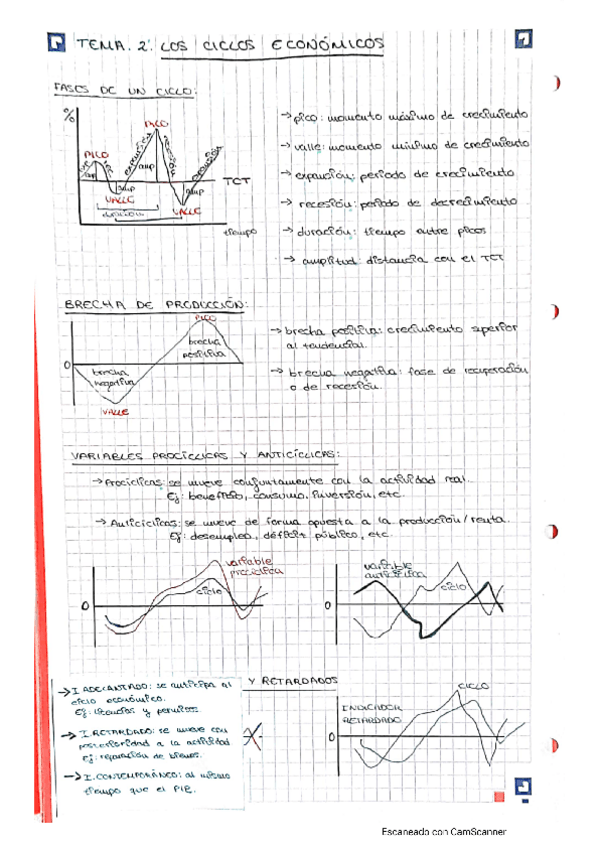 TEMA. 2: LOS CICLOS ECONÓMICOS
FASES DE UN CICLO:
%
PICO
PICO
expansión
recesión
expansión
amp
amp
amp
amp
VALLE
VALLE
duración
TCT
tiempo
→ pico: momento máximo de crecimiento
→ valle: momento mínimo de crecimiento
→ expansión: período de crecimiento
→ recesión: período de decrecimiento
→ duración: tiempo entre picos
→ amplitud: distancia con el TCT
BRECHA DE PRODUCCIÓN:
PICO
brecha
positiva
0
brecha
negativa
VALLE
→ brecha positiva: crecimiento superior
al tendencial.
→ brecha negativa: fase de recuperación
o de recesión.
VARIABLES PROCÍCLICAS Y ANTICÍCLICAS:
→ Procíclicas: se mueve conjuntamente con la actividad real.
Ej: beneficio, consumo, inversión, etc.
→ Anticíclicas: se mueve de forma opuesta a la producción/renta.
Ej: desempleo, déficit público, etc.
variable
procíclica
ciclo
0
variable
anticíclica
ciclo
0
Y RETARDADOS
→ I. ADELANTADO: se anticipa al
ciclo económico.
Ej: licencias y permisos.
→ I. RETARDADO: se mueve con
posterioridad a la actividad
Ej: reparación de bienes.
→ I. CONTEMPORÁNEO: al mismo
tiempo que el PIB.
CICLO
INDICADOR
RETARDADO
0
Escaneado con CamScanner